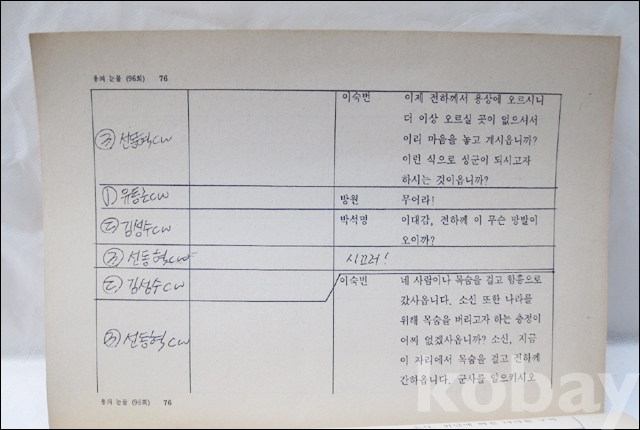 용의 눈물 (96회) 76
이숙번 이제 전하께서 용상에 오르시니
더 이상 오르실 곳이 없으셔서
이리 마음을 놓고 계시옵니까?
이런 식으로 성군이 되시고자
하시는 것이옵니까?
선동혁CW
방원 무어라!
유동근CW
박석명 이대감, 전하께 이 무슨 망발이
오이까?
김성수CW
선동혁CW
시끄러!
김성수CW
이숙번 네 사람이나 목숨을 걸고 함흥으로
갔사옵니다. 소신 또한 나라를
위해 목숨을 버리고자 하는 충정이
어찌 없겠사옵니까? 소신, 지금
이 자리에서 목숨을 걸고 전하께
간하옵니다. 군사를 일으키시오
선동혁CW
용의 눈물 (96회) 76
kobay